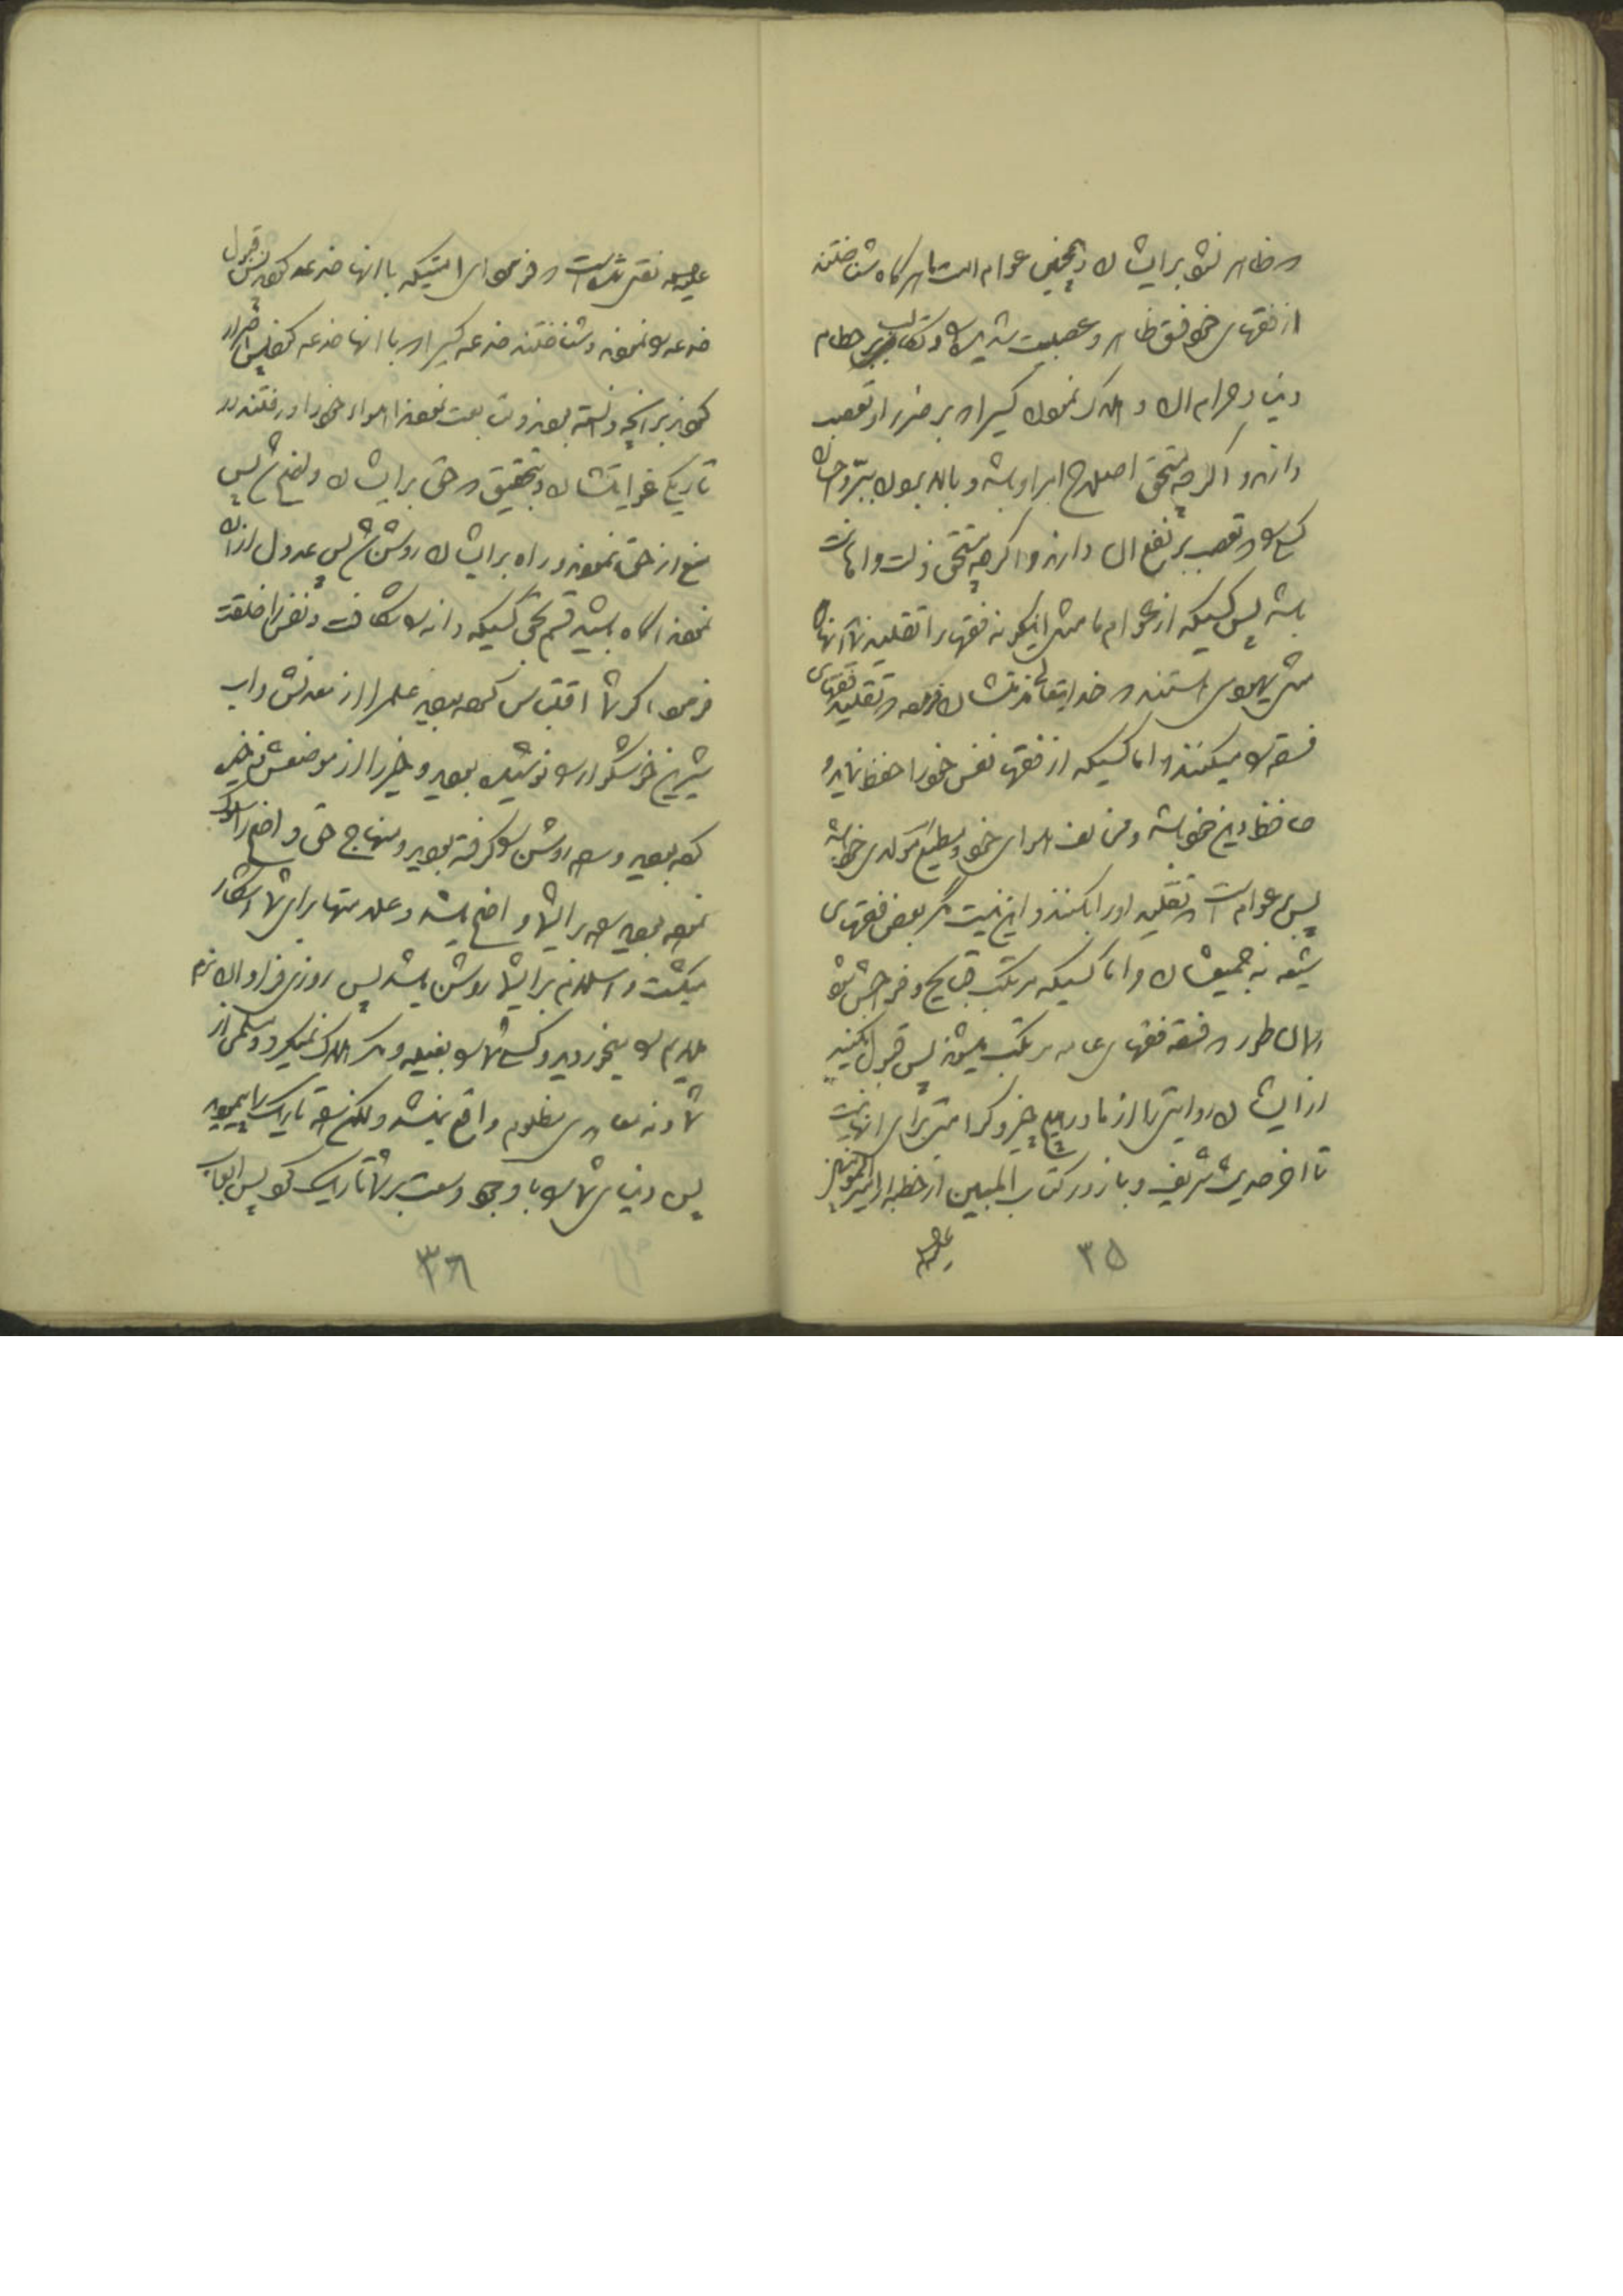 که ظاهر نشود برایشان و همچنین عوام امت ما هرگاه شناختند
از فقهای خود فسق ظاهر و عصبیت شدیده و تکالب بر حطام
دنیا و حرام آن و هلاک نمودن کسیرا که بر ضرر او تعصب
دارند و اگرچه مستحق اصلاح امر او باشد و بالا بودن ببر و احسان
کسی را که تعصب بر نفع آن دارند و اگرچه مستحق ذلت و اهانت
باشد پس کسیکه از عوام ما مثل اینگونه فقها را تقلید نماید آنها
مثل یهودی هستند که خدایتعالی مذمتشان فرموده در تقلید فقهای
فسقه میکنند و اما کسیکه از فقها نفس خود را حفظ نماید و
حافظ دین خود باشد و مخالف هوای خود و مطیع مولای خود باشد
پس عوام است که تقلید او را بکنند و این نیست مگر بعض فقهای
شیعه نه جمیعشان و اما کسیکه مرتکب قبایح و فواحش شود
همان طور که فسقه فقهای عامه مرتکب میشوند پس قبول نکنید
از ایشان روایتی را از ما در هیچ چیز و کرامتی برای آنها نیست
تا آخر حدیث شریف و باز در کتاب المبین از خطبه امیر المومنین
علیه السلام
۳۵
علیه السلام نقل شده است که فرمود ای امتیکه با آنها خدعه کردند پس قبول
خدعه نمودند و شناختند خدعه کسیرا که با آنها خدعه کرد پس اصرار
کردند بر آنچه دانسته بودند و متابعت نمودند اهواء خود را و رفتند در
تاریکی غوایتشان و بتحقیق که حق برایشان واضح شد پس
منع از حق نمودند و راه برایشان روشن شد پس عدول از آن
نمودند آگاه باشید قسم بحق کسیکه دانه را شکافت و نفس را خلقت
فرمود اگر شما اقتباس کرده بودید علم را از معدنش و آب
شیرین خوشگوار را نوشیده بودید و خیر را از موضعش ذخیره
کرده بودید و راه روشن را گرفته بودید و منهاج حق واضح را سلوک
نموده بودید راه برای شما واضح میشد و علامتها برای شما آشکار
میگشت و اسلام برای شما روشن میشد پس روزی فراوان نرم
ملایم را میخوردید و کسی از شما را بعیله و مکر هلاک نمیکرد و ظلمی از
شما و نه معاهدی مظلوم واقع نمیشد ولکن راه تاریک را پیمودید
پس دنیای شما با وجود وسعت بر شما تاریک گردید پس ابواب
۳۶